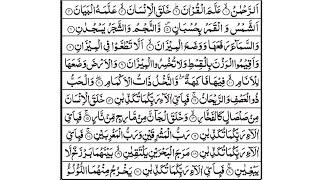 اَلرَّحْمٰنُ ۙ عَلَّمَ الْقُرْاٰنَ ؕ خَلَقَ الْاِنْسَانَ ۙ عَلَّمَهُ الْبَيَانَ
اَلشَّمْسُ وَ الْقَمَرُ بِحُسْبَانٍ ۪ وَّالنَّجْمُ وَ الشَّجَرُ يَسْجُدٰنِ
وَالسَّمَآءَ رَفَعَهَا وَوَضَعَ الْمِيْزَانَ ۙ اَلَّا تَطْغَوْا فِي الْمِيْزَانِ
وَاَقِيْمُوا الْوَزْنَ بِالْقِسْطِ وَلَا تُخْسِرُوا الْمِيْزَانَ وَالْاَرْضَ وَضَعَهَا
لِلْاَنَامِ ۙ فِيْهَا فَاكِهَةٌ ۪ وَّالنَّخْلُ ذَاتُ الْاَكْمَامِ ۖ وَ الْحَبُّ
ذُو الْعَصْفِ وَالرَّيْحَانُ ۚ فَبِاَيِّ اٰلَآءِ رَبِّكُمَا تُكَذِّبٰنِ خَلَقَ الْاِنْسَانَ
مِنْ صَلْصَالٍ كَالْفَخَّارِ ۙ وَخَلَقَ الْجَآنَّ مِنْ مَّارِجٍ مِّنْ نَّارٍ ۚ فَبِاَيِّ
اٰلَآءِ رَبِّكُمَا تُكَذِّبٰنِ رَبُّ الْمَشْرِقَيْنِ وَرَبُّ الْمَغْرِبَيْنِ ۚ فَبِاَيِّ
اٰلَآءِ رَبِّكُمَا تُكَذِّبٰنِ مَرَجَ الْبَحْرَيْنِ يَلْتَقِيٰنِ ۙ بَيْنَهُمَا بَرْزَخٌ لَّا
يَبْغِيٰنِ ۚ فَبِاَيِّ اٰلَآءِ رَبِّكُمَا تُكَذِّبٰنِ يَخْرُجُ مِنْهُمَا